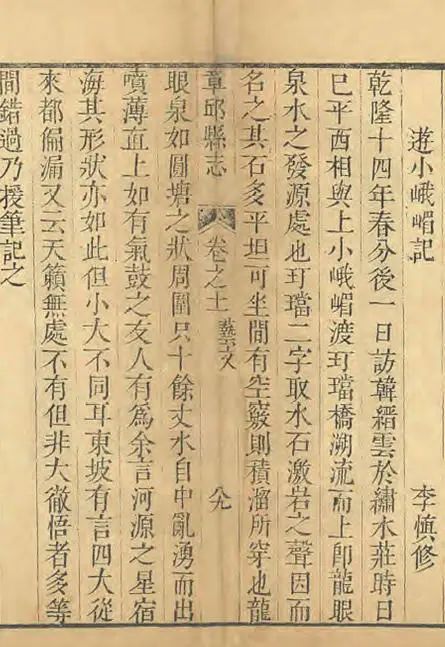 遊小峨嵋記 李慎修
乾隆十四年春分後一日訪韓縉雲於繡水莊時日
巳平西相與上小峨嵋渡玎璫橋溯流而上卽龍眼
泉水之發源處也玎璫二字取水石激岩之聲因而
名之其石多平坦可坐間有空竅則積溜所穿也龍
章邱縣志 卷之十 藝文 八九
眼泉如圓塘之狀周圍只十餘丈水自中亂湧而出
噴薄直上如有氣鼓之友人有爲余言河源之星宿
海其形狀亦如此但小大不同耳東坡有言四大從
來都偏漏又云天籟無處不有但非大徹悟者多等
間錯過乃援筆記之